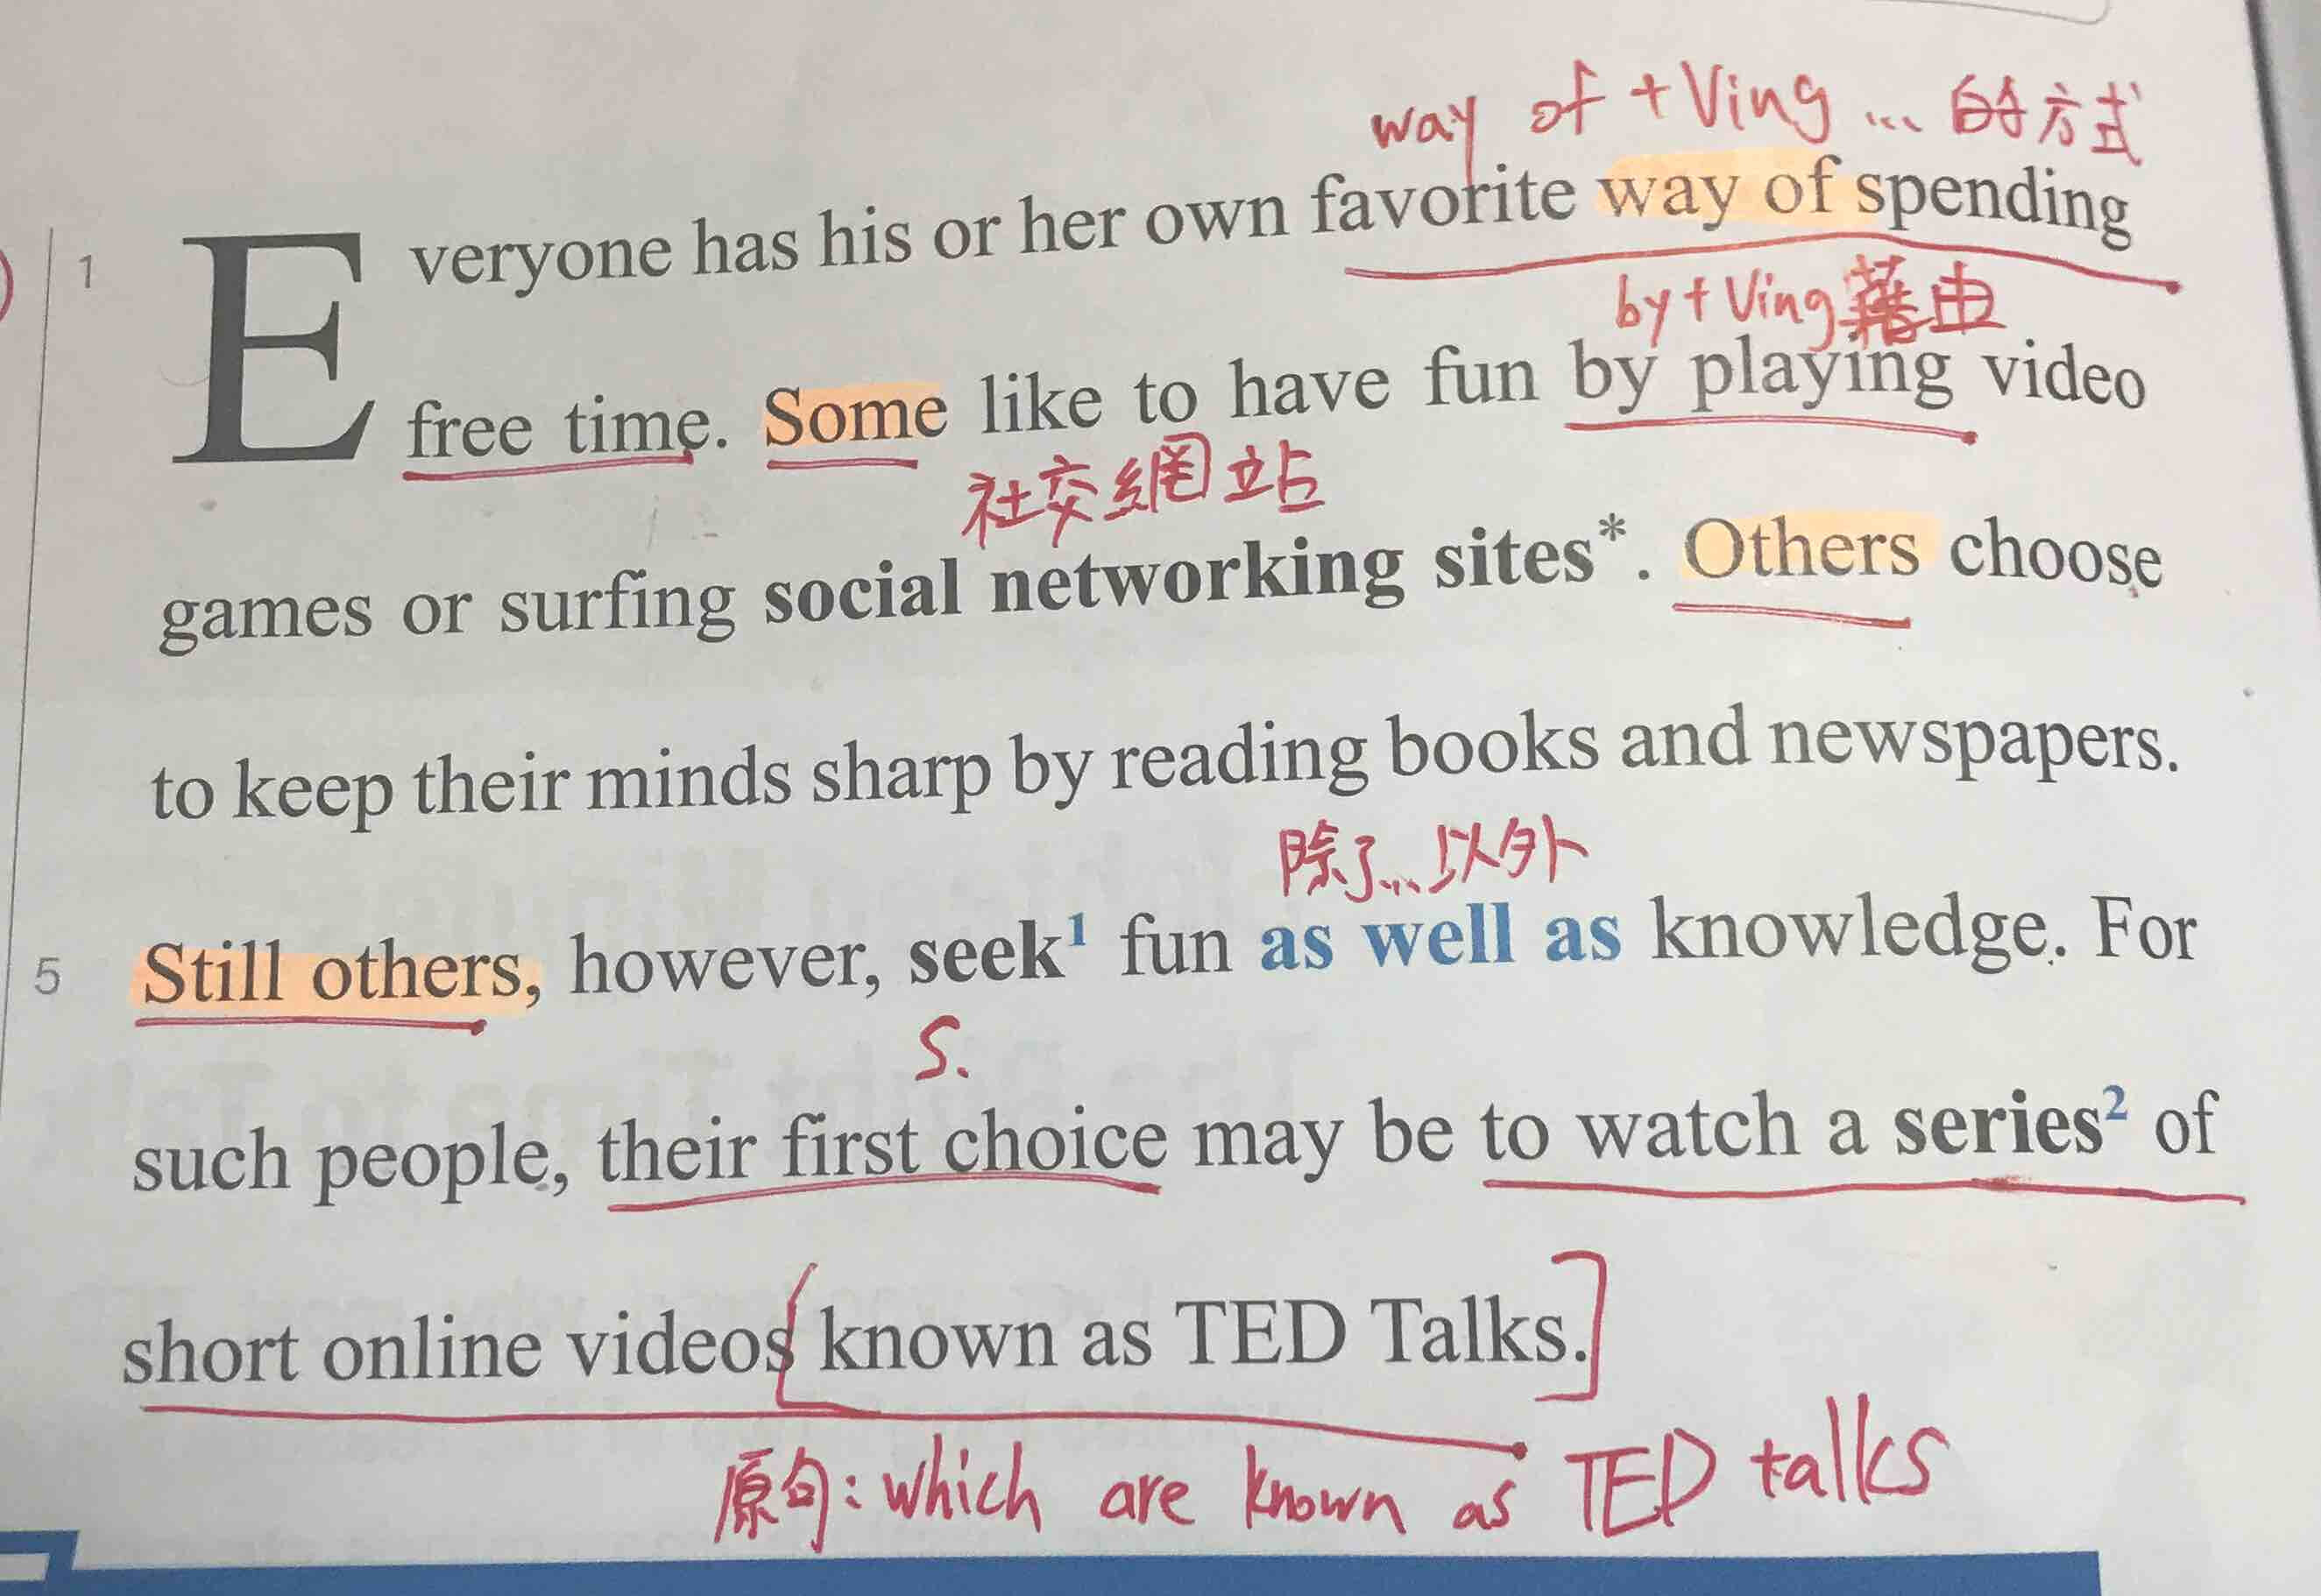 way of + Ving ... 的方式
1 Everyone has his or her own favorite way of spending
by + Ving 藉由
free time. Some like to have fun by playing video
社交網站
games or surfing social networking sites*. Others choose
to keep their minds sharp by reading books and newspapers.
除了...以外
5 Still others, however, seek¹ fun as well as knowledge. For
S.
such people, their first choice may be to watch a series² of
short online videos [known as TED Talks.]
原句：which are known as TED talks